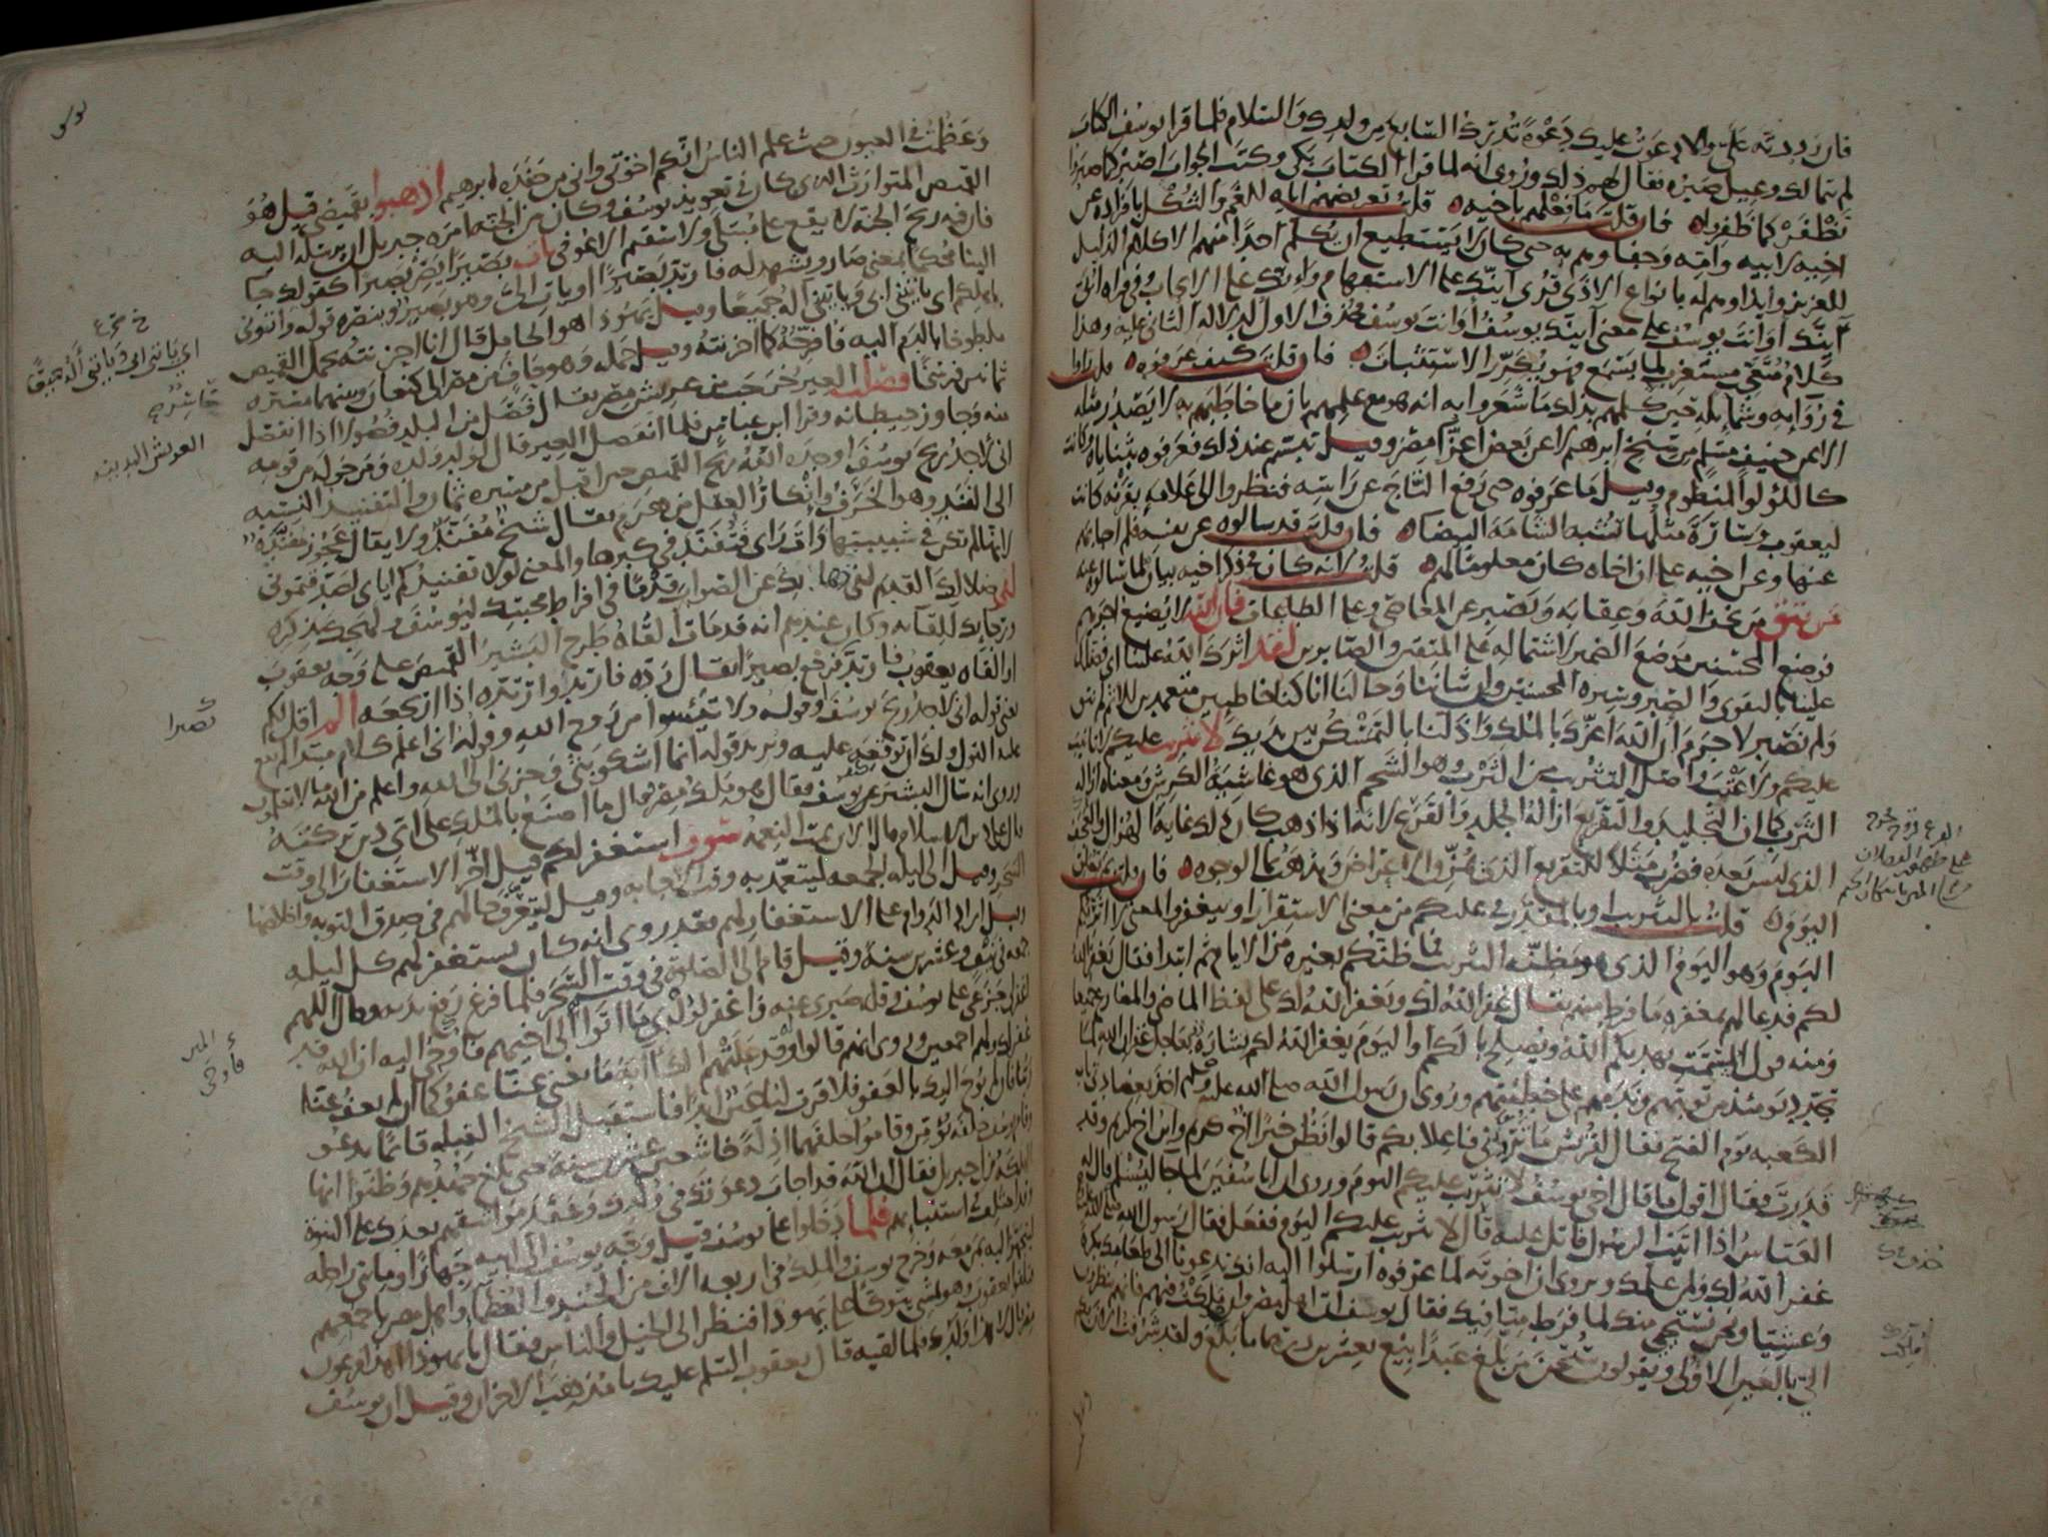 فان رددته علىّ والا دعوت عليك دعوة تدرك السابع من ولدك والسلام فلما قرا يوسف الكتاب
لم يتمالك وعيل صبره فقال لهم ذلك وروى انه لما قرا الكتاب بكى وكتب الجواب اصبر كما صبروا
تظفر كما ظفروا فان قلت ما فعلهم باخيه قلت تعريضهم اياه للغم والثكل بافراده عن
اخيه لابيه وامه وجفاوهم به حتى كان لا يستطيع ان يكلم احدا منهم الا كلام الذليل
للعزيز وايذاوهم له بانواع الاذى قرى اينك على الاستفهام وانك على الايجاب وفى قراه ابىّ
اينك او انت يوسف على معنى اينك يوسف او انت يوسف فحذف الاول لدلاله الثانى عليه وهذا
كلام متعجب مستغرب لما يسمع فهو يكرر الاستثبات فان قلت كيف عرفوه قلت راوا
فى روايه وشمايله حين كلمهم بذلك ما شعروا به انه هو مع علمهم بان ما خاطبهم به لا يصدر مثله
الا عن حنيف مسلم من سنخ ابرهيم لا عن بعض اعزا مصر وقيل تبسم عند ذلك فعرفوه بثناياه وكانت
كاللؤلؤ المنظوم وقيل ما عرفوه حتى رفع التاج عن راسه فنظروا الى علامه بقرنه كانت
ليعقوب وسارة مثلها تشبه الشامة البيضا فان قلت قد سالوه عن نفسه فلم اجابهم
عنها وعن اخيه على ان اخاه كان معلوما لهم قلت لانه كان فى ذكر اخيه بيان لما سالوه عنه
من يتق من يخف الله وعقابه ويصبر عن المعاصى وعلى الطاعات فان الله لا يضيع اجرهم
فوضع المحسنين موضع الضمير لاشتماله على المتقين والصابرين لقد اثرك الله علينا اى فضلك
علينا بالتقوى والصبر وسيره المحسنين وان شاننا وحالنا انا كنا خاطيين متعمدين للاثم لم نتق
ولم نصبر لا جرم ان الله اعزك بالملك واذلنا بالتمسكن بين يديك لا تثريب عليكم لا تانيب
عليكم ولا عتب واصل التثريب من الثرب وهو الشحم الذى هو غاشية الكرش ومعناه ازاله
الثرب كما ان التجليد والتقريع ازالة الجلد والقرع لانه اذا ذهب كان ذلك غاية الهزال والعجف
الذى ليس بعده فضرب مثلا للتقريع الذى يمزق الاعراض ويذهب بما الوجوه فان قلت بم تعلق
اليوم قلت بالتثريب او بالمقدر فى عليكم من معنى الاستقرار او بيغفر والمعنى لا اثربكم
اليوم وهو اليوم الذى هو مظنه التثريب فما ظنكم بغيره من الايام ثم ابتدا فقال يغفر الله
لكم فدعا لهم بمغفره ما فرط منهم يقال غفر الله لك ويغفر الله لك على لفظ الماضى والمضارع جميعا
ومنه قول المشمت يهديكم الله ويصلح بالكم او اليوم يغفر الله لكم بشارة بعاجل غفران الله لما
تجدد يومئذ من توبتهم وندمهم على خطيئتهم وروى ان رسول الله صلى الله عليه وسلم اخذ بعضادتى باب
الكعبه يوم الفتح فقال لقريش ما تروننى فاعلا بكم قالوا نظن خيرا اخ كريم وابن اخ كريم وقد
قدرت فقال اقول ما قال اخى يوسف لا تثريب عليكم اليوم وروى ان ابا سفين لما جا ليسلم قال له
العباس اذا اتيت الرسول فاتل عليه قال لا تثريب عليكم اليوم ففعل فقال رسول الله صلى الله عليه
غفر الله لك ولمن علمك ويروى ان اخوته لما عرفوه ارسلوا اليه انك تدعونا الى طعامك بكرة
وعشيا ونحن نستحيى منك لما فرط منا فيك فقال يوسف ان اهل مصر وان ملكت فيهم فانهم ينظرون
الىّ بالعين الاولى ويقولون سبحن من بلغ عبدا بيع بعشرين درهما ما بلغ ولقد شرفت الان بكم
القرع قروح تخرج
على
حذف
وعظمت فى العيون حيث علم الناس انكم اخوتى وانى من حفدة ابرهيم اذهبوا بقميصى قيل هو
القميص المتوارث الذى كان فى تعويذ يوسف وكان من الجنه امره جبريل ان يرسله اليه
فان فيه ريح الجنه لا يقع على مبتلى ولا سقيم الا عوفى يات بصيرا يصر بصيرا كقولك جا
البنا محكما بمعنى صار ويشهد له فارتد بصيرا او يات الىّ وهو بصير وينصره قوله واتونى
باهلكم اى ياتنى ابى وياتنى اله جميعا وقيل يهوذا هو الحامل قال انا احزنته بحمل القميص
ملطوخا بالدم اليه فافرحه كما احزنته وقيل حمله وهو حاف من مصر الى كنعان وبينهما مسيره
ثمانين فرسخا فصلت العير خرجت من عريش مصر يقال فصل من البلد فصولا اذا انفصل
منه وجاوز حيطانه وقرا ابن عباس فلما انفصل العير قال لولد ولده ومن حوله من قومه
انى لاجد ريح يوسف اوجده الله ريح القميص حين اقبل من مسيره ثمان والتفنيد النسبه
الى الفند وهو الخرف وانكار العقل من هرم يقال شيخ مفند ولا يقال عجوز مفندة
لانها لم تكن فى شبيبتها ذات راى فتفند فى كبرها والمعنى لولا تفنيدكم اياى لصدقتمونى
لفى ضلالك القديم لفى ذهابك عن الصواب قدما فى افراط محبتك ليوسف ولهجك بذكره
ورجايك للقايه وكان عندهم انه قد مات القاه طرح البشير القميص على وجه يعقوب
او القاه يعقوب فارتد فرجع بصيرا يقال رده فارتد وارتده اذا ارتجعه الم اقل لكم
يعنى قوله انى لاجد ريح يوسف او قوله ولا تيئسوا من روح الله وقوله انى اعلم كلام مبتدا لم يقع
عليه القول ولك ان توقعه عليه وتريد قوله انما اشكو بثى وحزنى الى الله واعلم من الله ما لا تعلمون
وروى انه سال البشير عن يوسف فقال هو ملك مصر قال ما اصنع بالملك على اى دين تركته
قال على دين الاسلام قال الان تمت النعمه سوف استغفر لكم قيل اخر الاستغفار الى وقت
السحر وقيل الى ليله الجمعه ليتعمد به وقت الاجابه وقيل ليتعرف حالهم فى صدق التوبه واخلاصها
وقيل اراد الدوام على الاستغفار لهم فقد روى انه كان يستغفر لهم كل ليله
جمعه فى نيف وعشرين سنة وقيل قام الى الصلوة فى وقت السحر فلما فرغ رفع يديه وقال اللهم
اغفر لى جزعى على يوسف وقله صبرى عنه واغفر لولدى ما اتوا الى اخيهم فاوحى اليه ان الله قد
غفر لك ولهم اجمعين وروى انهم قالوا وقد علتهم الكابة ما يغنى عنا عفوكما ان لم يعف عنا
ربنا فان لم يوح اليك بالعفو فلا قرت لنا عين ابدا فاستقبل الشيخ القبله قايما يدعو
وقام يوسف خلفه يؤمن وقاموا خلفهما اذلة خاشعين عشرين سنة حتى بلغ جهدهم وظنوا انها
الهلكه نزل جبريل فقال ان الله قد اجاب دعوتك فى ولدك وعقد مواثيقهم بعدك على النبوة
وقد اختلف فى استنبايهم فلما دخلوا على يوسف قيل وجه يوسف الى ابيه جهازا ومايتى راحله
ليتجهز اليه بمن معه وخرج يوسف والملك فى اربعه الاف من الجند والعظما واهل مصر باجمعهم
فتلقوا يعقوب وهو يمشى يتوكا على يهوذا فنظر الى الخيل والناس فقال يا يهوذا اهذا فرعون
مصر قال لا هذا ولدك فلما لقيه قال يعقوب السلم عليك يا مذهب الاحزان وقيل ان يوسف
اى ياتنى ابى وياتى اله جميعا
بصيرا
فاوحى